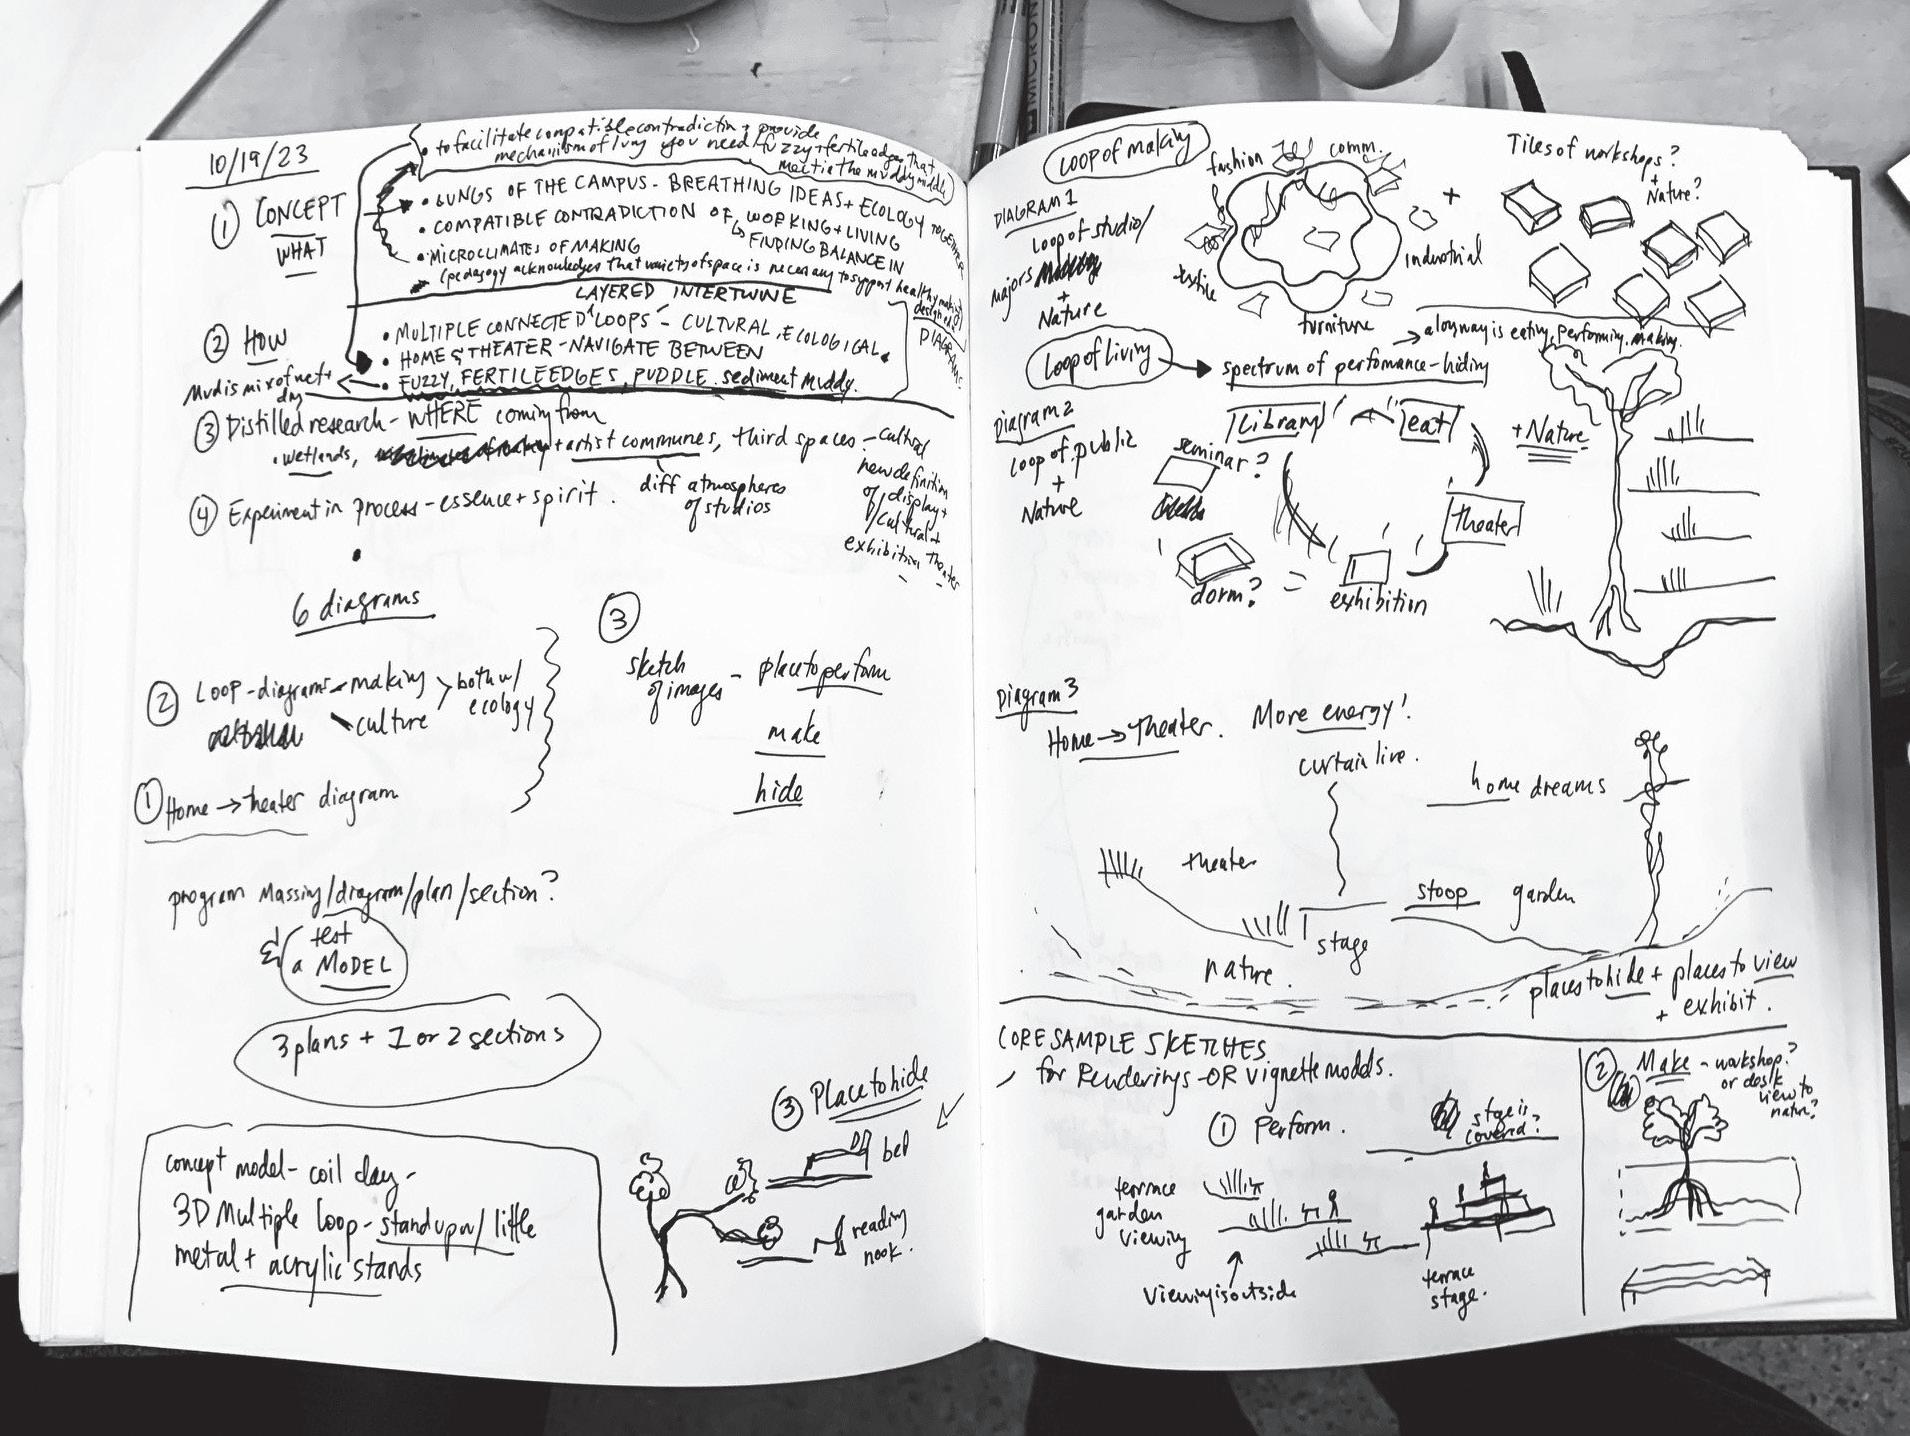 10/19/23
• to facilitate compatible contradiction + provide
mechanism of lung you need fuzzy + fertile edges that
meet in the muddy middle
① CONCEPT
WHAT
• LUNGS OF THE CAMPUS - BREATHING IDEAS + ECOLOGY TOGETHER
• COMPATIBLE CONTRADICTION OF WORKING + LIVING
↳ FINDING BALANCE IN
• MICROCLIMATES OF MAKING
(pedagogy acknowledges that variety of space is necessary to support healthy making
designed)
LAYERED INTERTWINE
② HOW
• MULTIPLE CONNECTED LOOPS - CULTURAL, ECOLOGICAL
• HOME & THEATER - NAVIGATE BETWEEN
• FUZZY, FERTILE EDGES, PUDDLE. sediment Muddy.
DIAGRAMS
Mud is mix of wet +
dry
③ Distilled research - WHERE coming from
• wetlands, + artist communes, third spaces - cultural
diff atmospheres
of studios
new definition
of display +
cultural +
exhibition theater
④ Experiment in process - essence + spirit.
6 diagrams
② Loop - diagrams - making
culture
both w/
ecology
① Home → theater diagram
③
sketch
of images - place to perform
make
hide
program Massing/diagram/plan/section?
& test
a MODEL
3 plans + 1 or 2 sections
concept model - coil clay -
3D Multiple loop - stand up w/ little
metal + acrylic stands
③ Place to hide
bed
reading
nook.
Loop of making
DIAGRAM 1
Loop of studio/
majors
+
Nature
fashion
comm.
industrial
furniture
textile
+
Tiles of workshops?
+
Nature?
Loop of Living
→ along way is eating, performing, making.
spectrum of performance - hiding
Diagram 2
Loop of public
+
Nature
Library
eat
theater
exhibition
seminar?
dorm?
+ Nature
Diagram 3
Home → Theater. More energy!
curtain live.
home dreams
theater
stage
stoop
garden
nature.
places to hide + places to view
+ exhibit.
CORE SAMPLE SKETCHES
for Renderings - OR vignette models.
① Perform.
stage is
covered?
terrace
garden
viewing
viewing is outside
terrace
stage.
② Make - workshop?
or desk
view to
nature?
MICRON